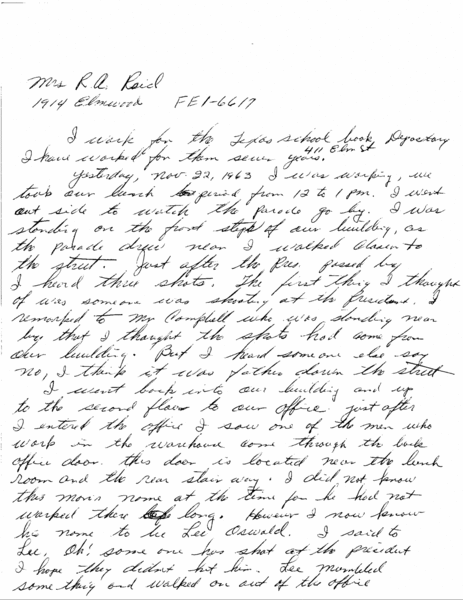 Mrs R. A. Reid
1914 Elmwood FE1-6617
I work for the Texas school book Depository
411 Elm St
I have worked for them seven years.
Yesterday, Nov 22, 1963 I was working, we
took our lunch period from 12 to 1 pm. I went
out side to watch the parade go by. I was
standing on the front steps of our building, as
the parade drew near I walked closer to
the street. Just after the Pres. passed by
I heard three shots. The first thing I thought
of was someone was shooting at the President. I
remarked to Mr Campbell who was standing near
by that I thought the shots had come from
our building. But I heard someone else say
no, I think it was father down the street
I went back into our building and up
to the second floor to our office. just after
I entered the office I saw one of the men who
work in the warehouse come through the back
office door. this door is located near the lunch
room and the rear stair way. I did not know
this man's name at the time for he had not
worked there long. However I now know
his name to be Lee Oswald. I said to
Lee, Oh! some one has shot at the president
I hope they didn't hit him. Lee mumbled
some thing and walked on out of the office